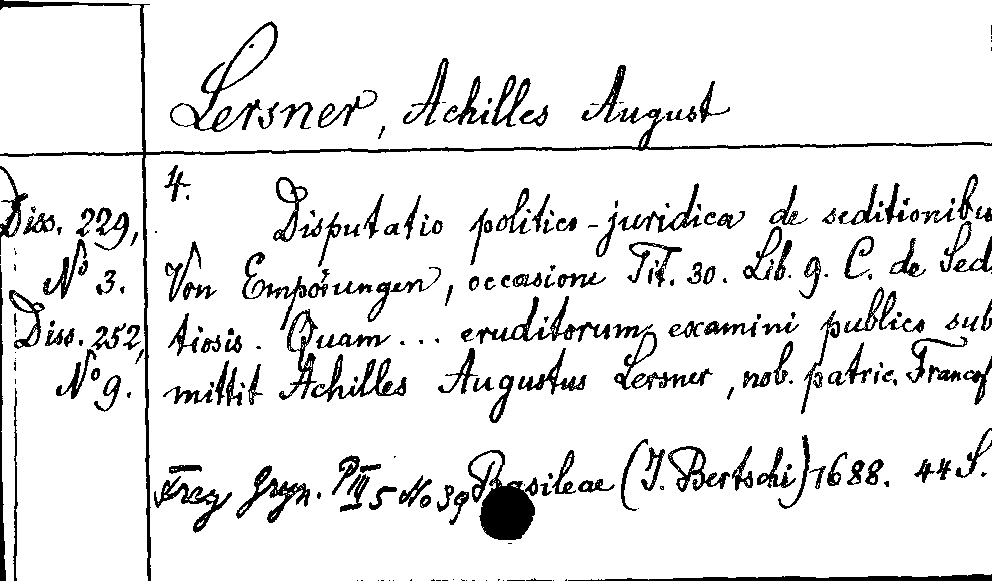 Lersner, Achilles August
4.
Diss. 229, Disputatio politico-juridica de seditionibus
Nº 3. Von Empörungen, occasione Tit. 30. Lib. 9. C. de Sedi
Diss. 252, tiosis. Quam ... eruditorum examini publico sub
Nº 9. mittit Achilles Augustus Lersner, nob. patric. Francof
Frey Gryn. P III 5 No 39 Basileae (J. Bertschi) 1688. 44 S.